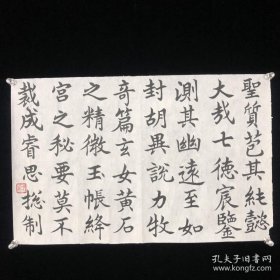 聖質芭其純懿
大哉七德宸鑒
測其幽遠至如
封胡異說力牧
奇篇玄女黃石
之精微玉帳絳
宮之秘要莫不
裁成睿思揔制
孔夫子旧书网